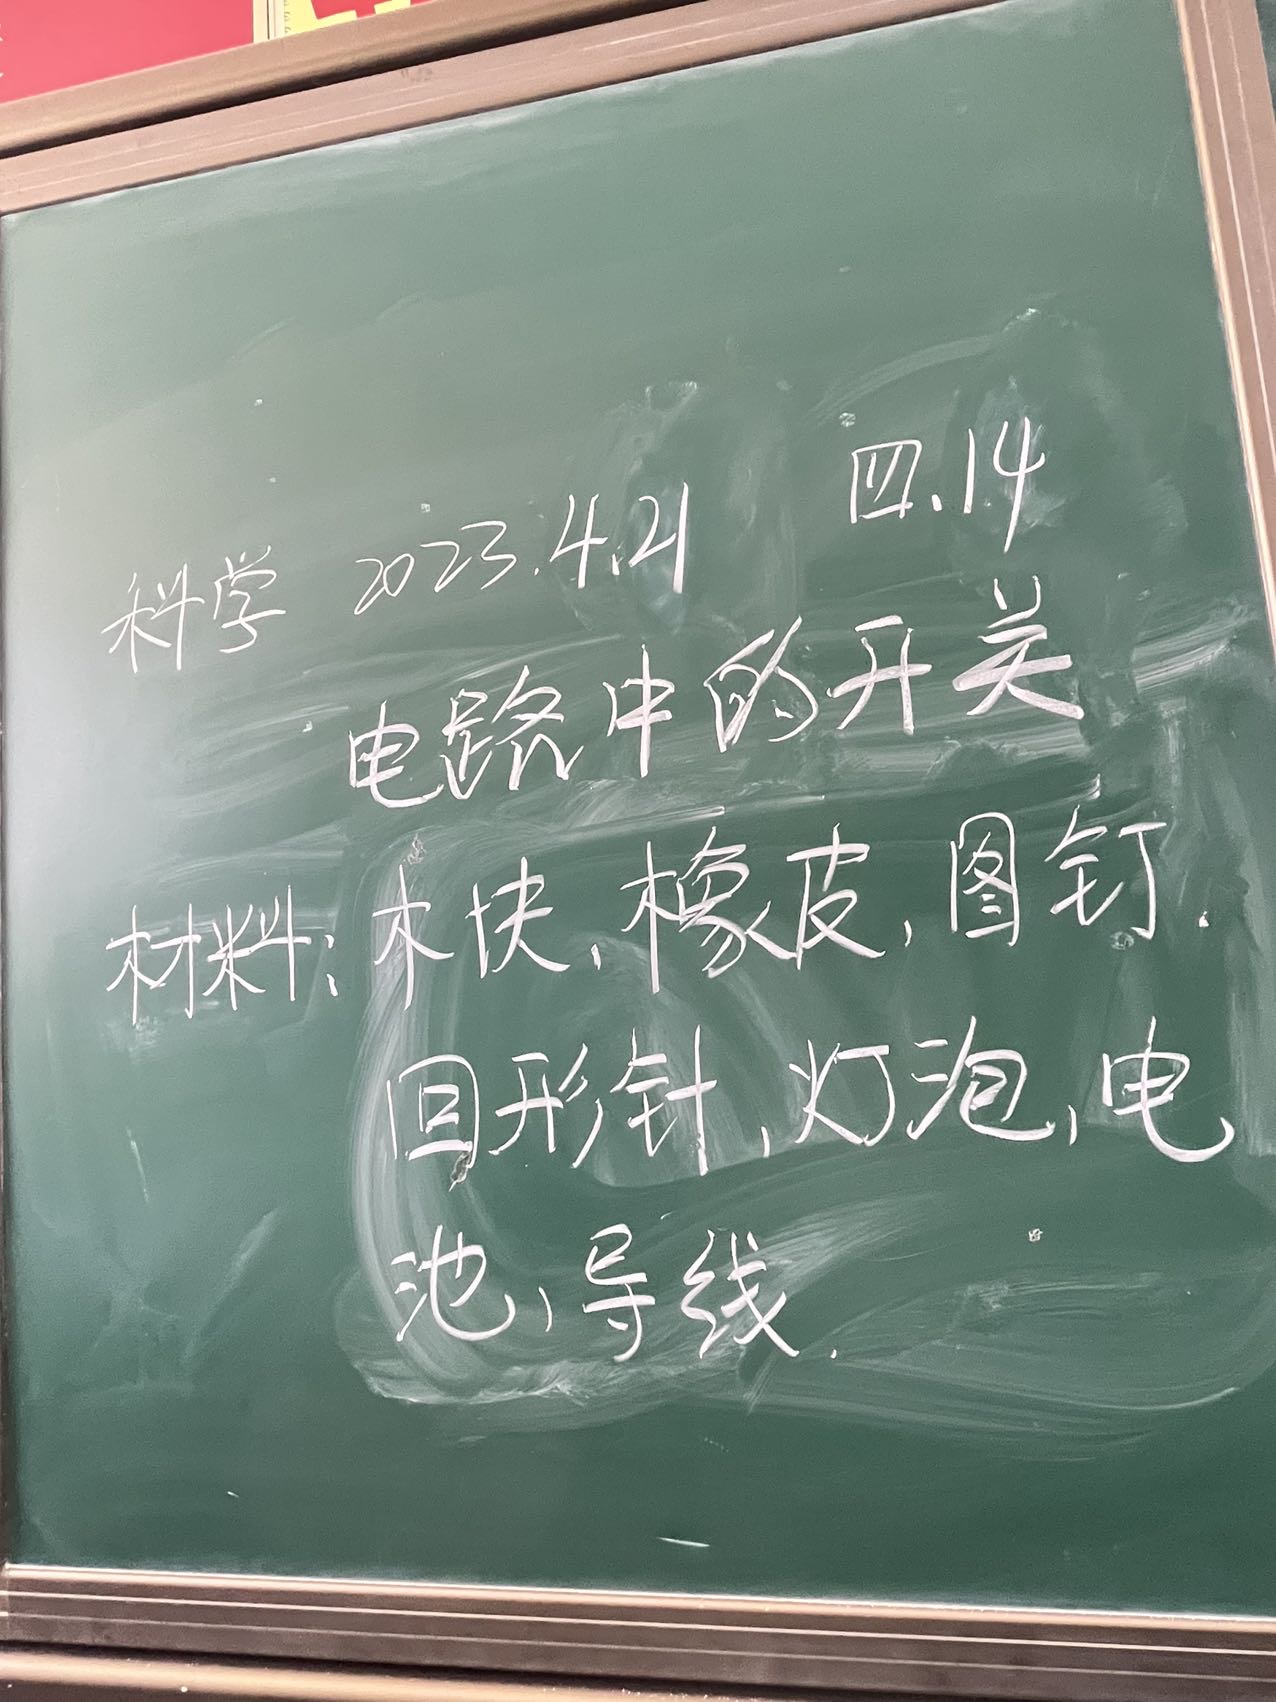 科学 2023.4.21 四.14
电路中的开关
材料:木块,橡皮,图钉.
回形针,灯泡,电
池,导线.